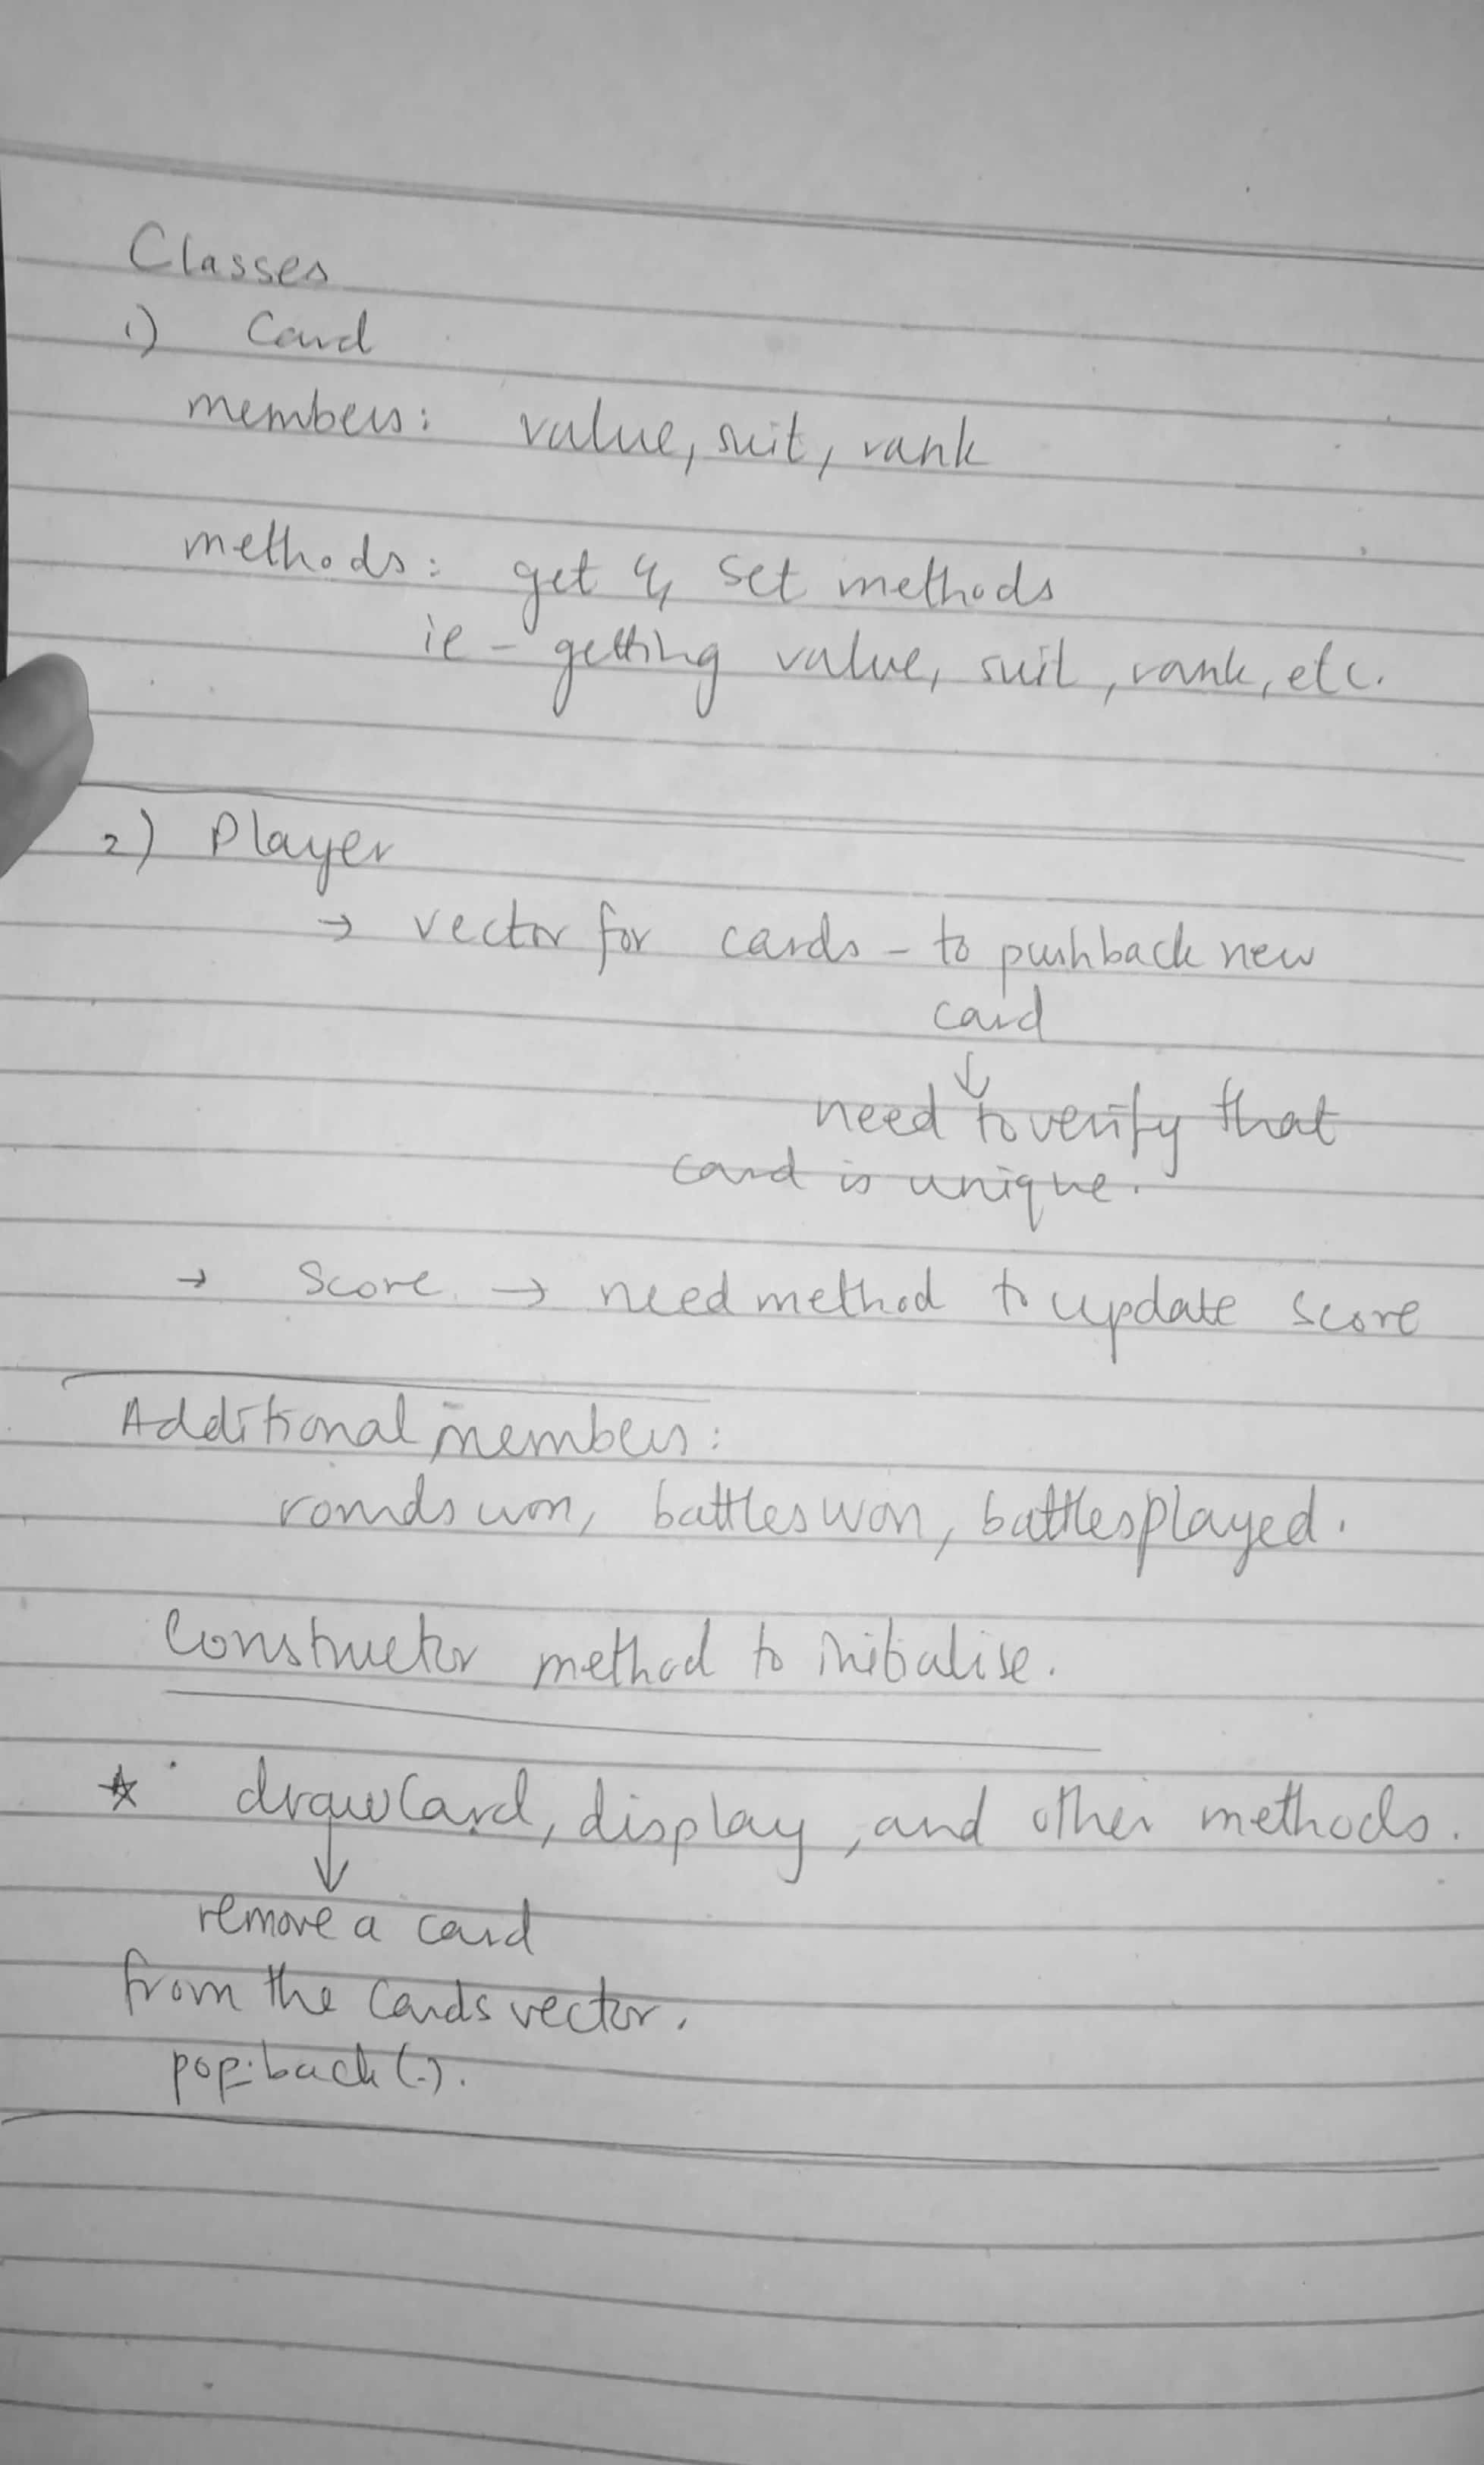 Classes
1) Card
members: value, suit, rank
methods: get & set methods
ie - getting value, suit, rank, etc.
2) Player
→ vector for cards - to pushback new
card
↓
need to verify that
card is unique.
→ Score → need method to update score
Additional members:
rounds won, battles won, battles played.
Constructor method to initialise.
☆ drawCard, display, and other methods.
↓
remove a card
from the cards vector.
pop_back().